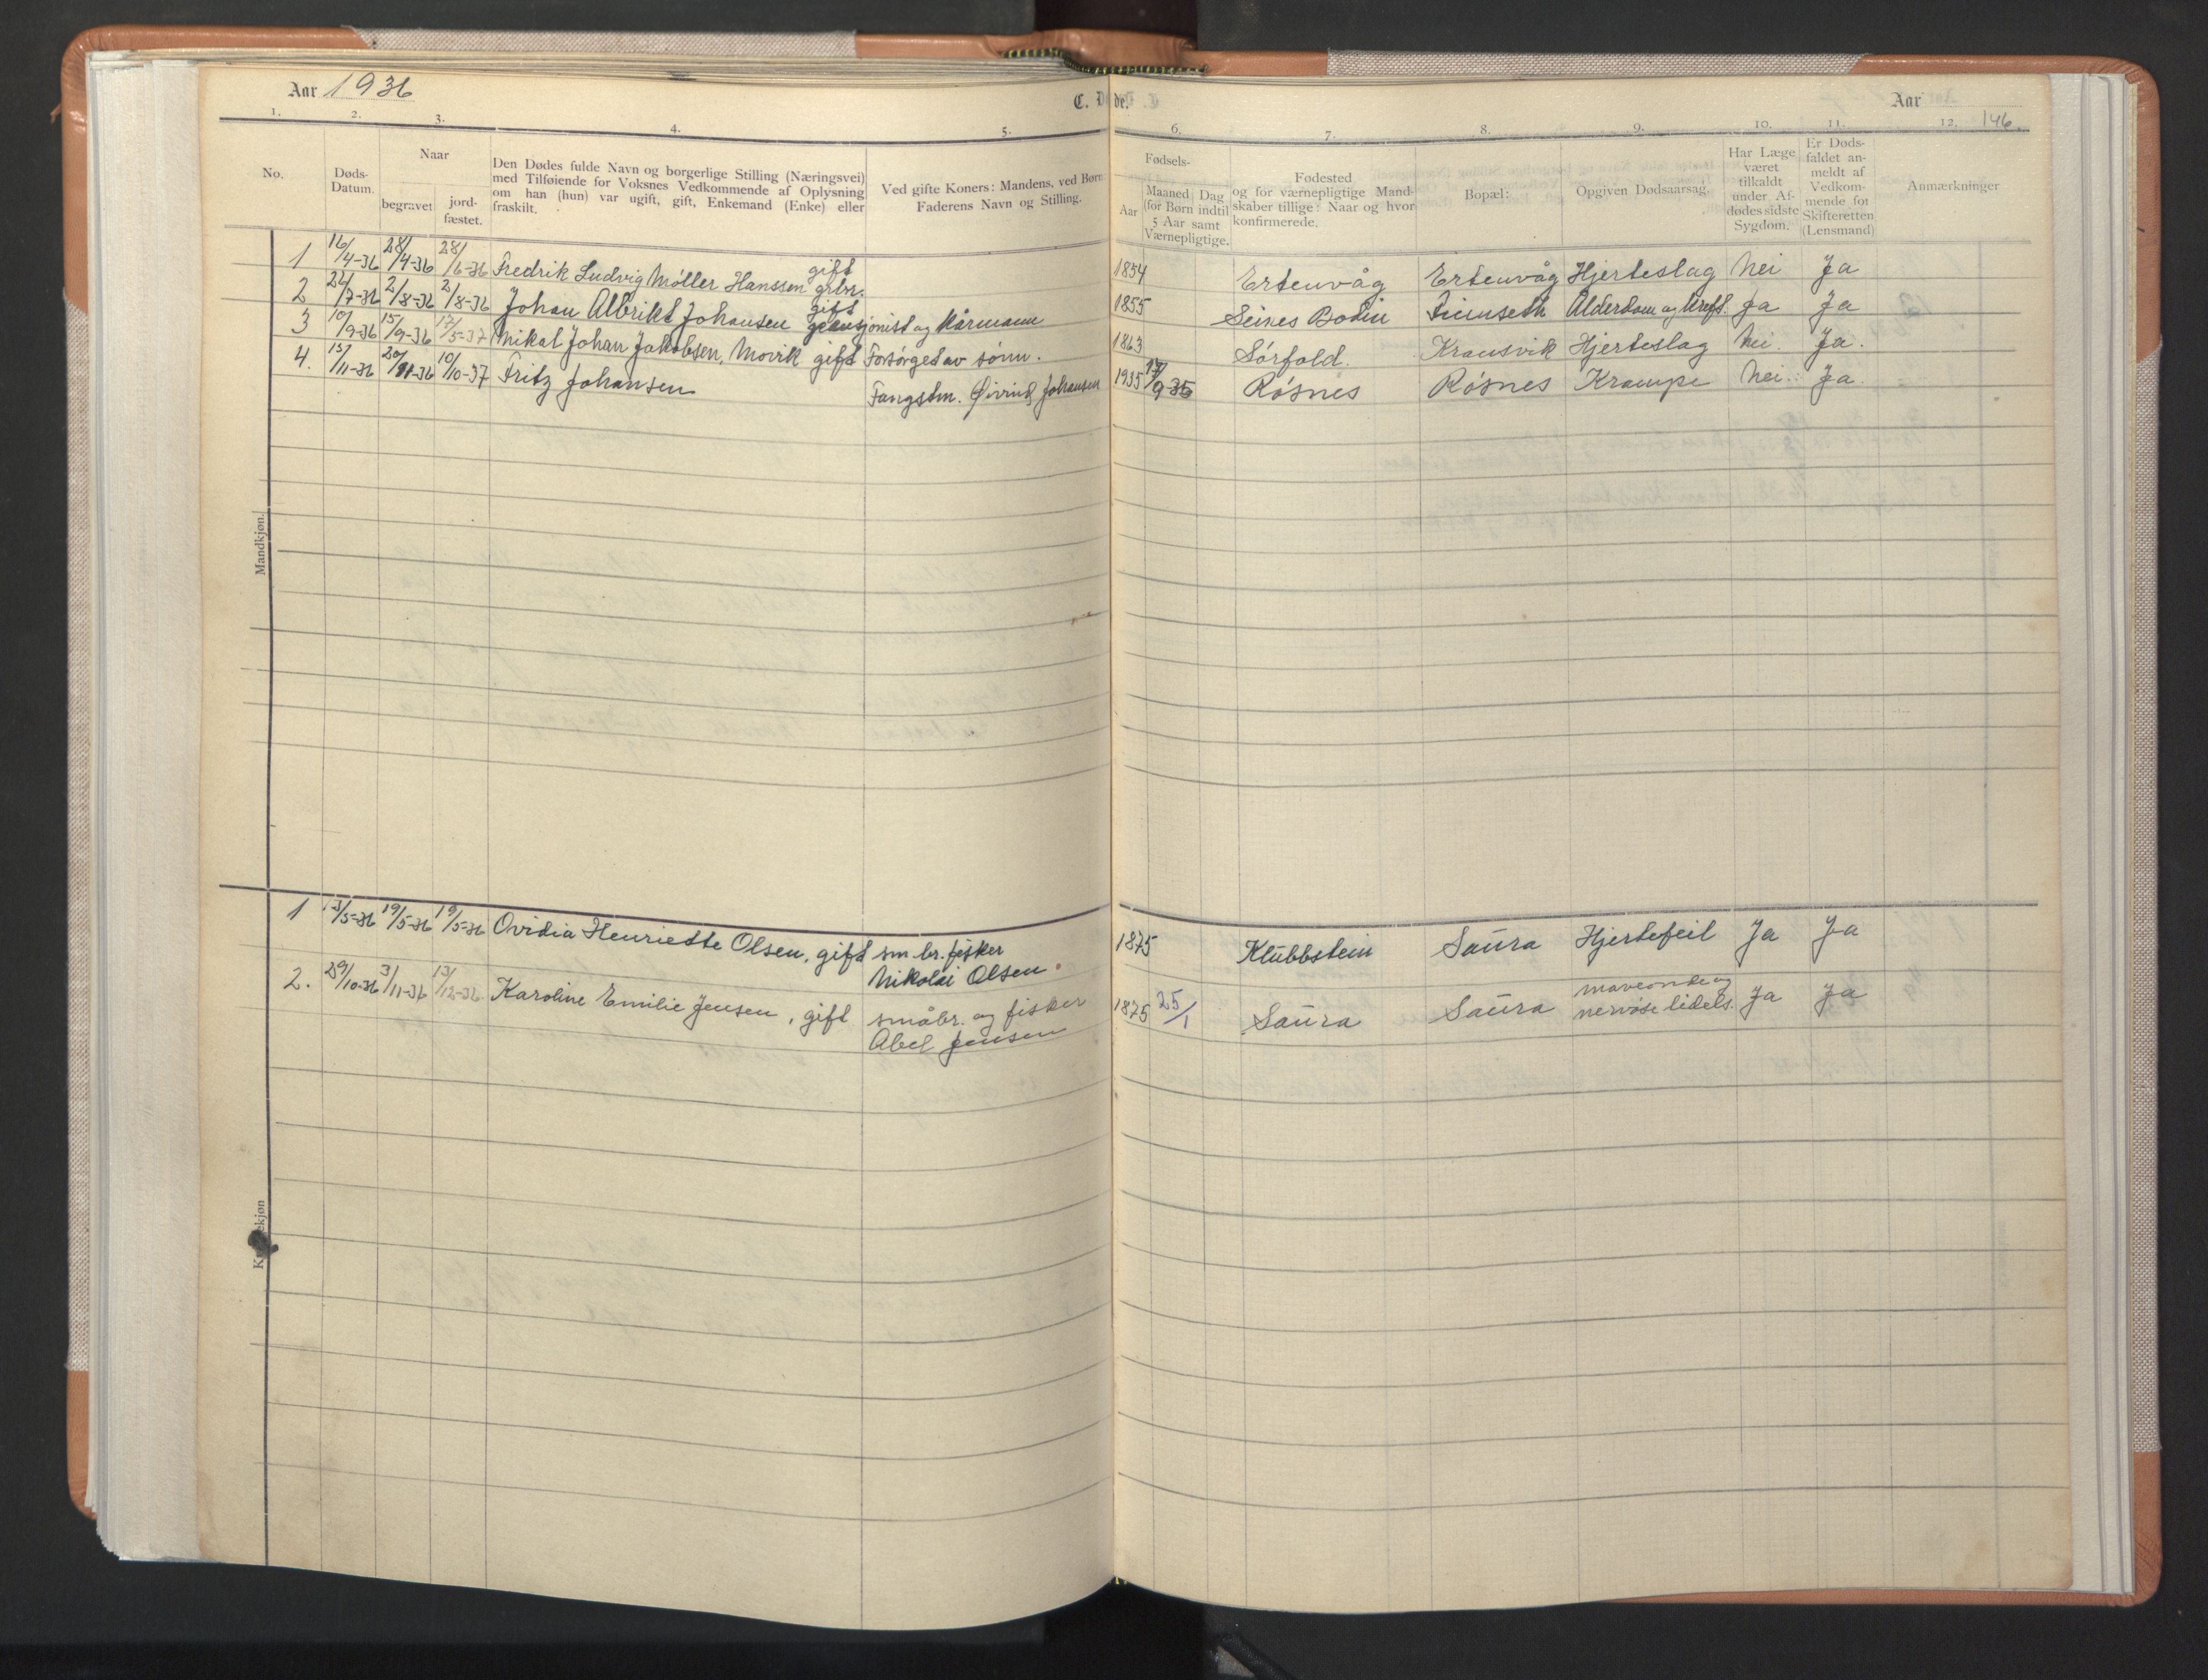 Aar 1936
C. Døde.
Aar
146.
1. 2. 3. 4. 5. 6. 7. 8. 9. 10. 11. 12.
No.
Døds-
Datum.
Naar
begravet
jord-
fæstet.
Den Dødes fulde Navn og borgerlige Stilling (Næringsvei)
med Tilføiende for Voksnes Vedkommende af Oplysning
om han (hun) var ugift, gift, Enkemand (Enke) eller
fraskilt.
Ved gifte Koners: Mandens, ved Børn
Faderens Navn og Stilling.
Fødsels-
Aar
Maaned Dag
(for Børn indtil
5 Aar samt
Værnepligtige.
Fødested
og for værnepligtige Mand-
skaber tillige: Naar og hvor
konfirmerede.
Bopæl:
Opgiven Dødsaarsag.
Har Læge
været
tilkaldt
under Af-
dødes sidste
Sygdom.
Er Døds-
faldet an-
meldt af
Vedkom-
mende for
Skifteretten
(Lensmand)
Anmærkninger
Mandkjøn.
1 16/4-36 28/4-36 28/6-36 Fredrik Ludvig Møller Hanssen gift grbr. 1854 Ertenvåg Ertenvåg Hjerteslag Nei Ja
2 24/7-36 2/8-36 2/8-36 Johan Albrikt Johansen gift pensjonist og kårmann 1855 Seines Bodin Alderdom og Ja Ja
3 10/9-36 15/9-36 17/5-37 Mikal Johan Jakobsen, Movik gift Forsørget av sønn. 1863 Sørfold. Kransvik Hjerteslag Nei. Ja.
4. 15/11-36 20/11-36 10/10-37 Fritz Johansen Fangstm. Øivind Johansen 1935 17/9-35 Røsnes Røsnes Krampe Nei. Ja.
Kvindekjøn
1 13/5-36 19/5-36 19/5-36 Ovidia Henriette Olsen, gift sm.br. fisker 1875 Klubbstein Saura Hjertefeil Ja Ja
Nikolai Olsen.
2. 29/10-36 3/11-36 13/12-36. Karoline Emilie Jensen, gift småbr. og fisker 1875 25/1 Saura Saura maveonde og Ja Ja
Abel Jensen nervøse lidels.